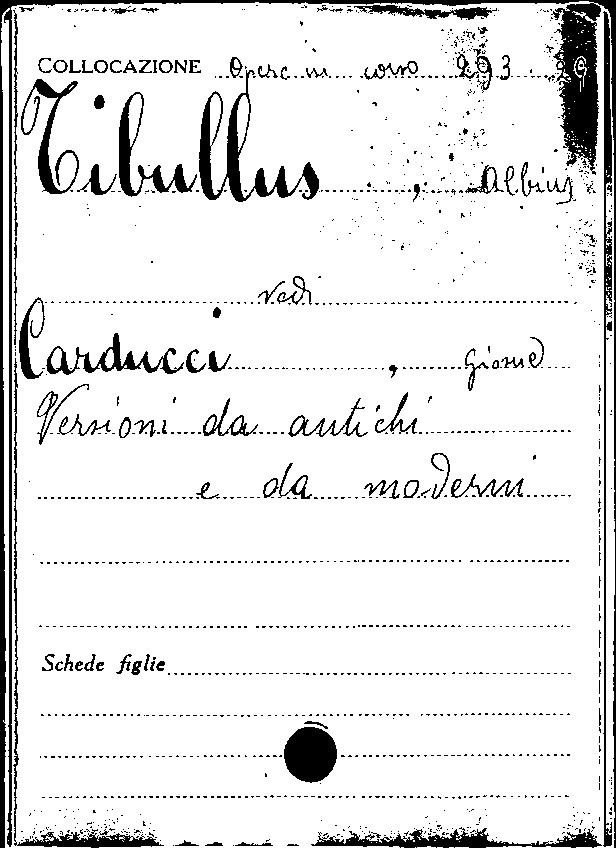 COLLOCAZIONE Opere in corso 293. 29
Tibullus, Albius
vedi
Carducci, Giosuè
Versioni da antichi
e da moderni
Schede figlie